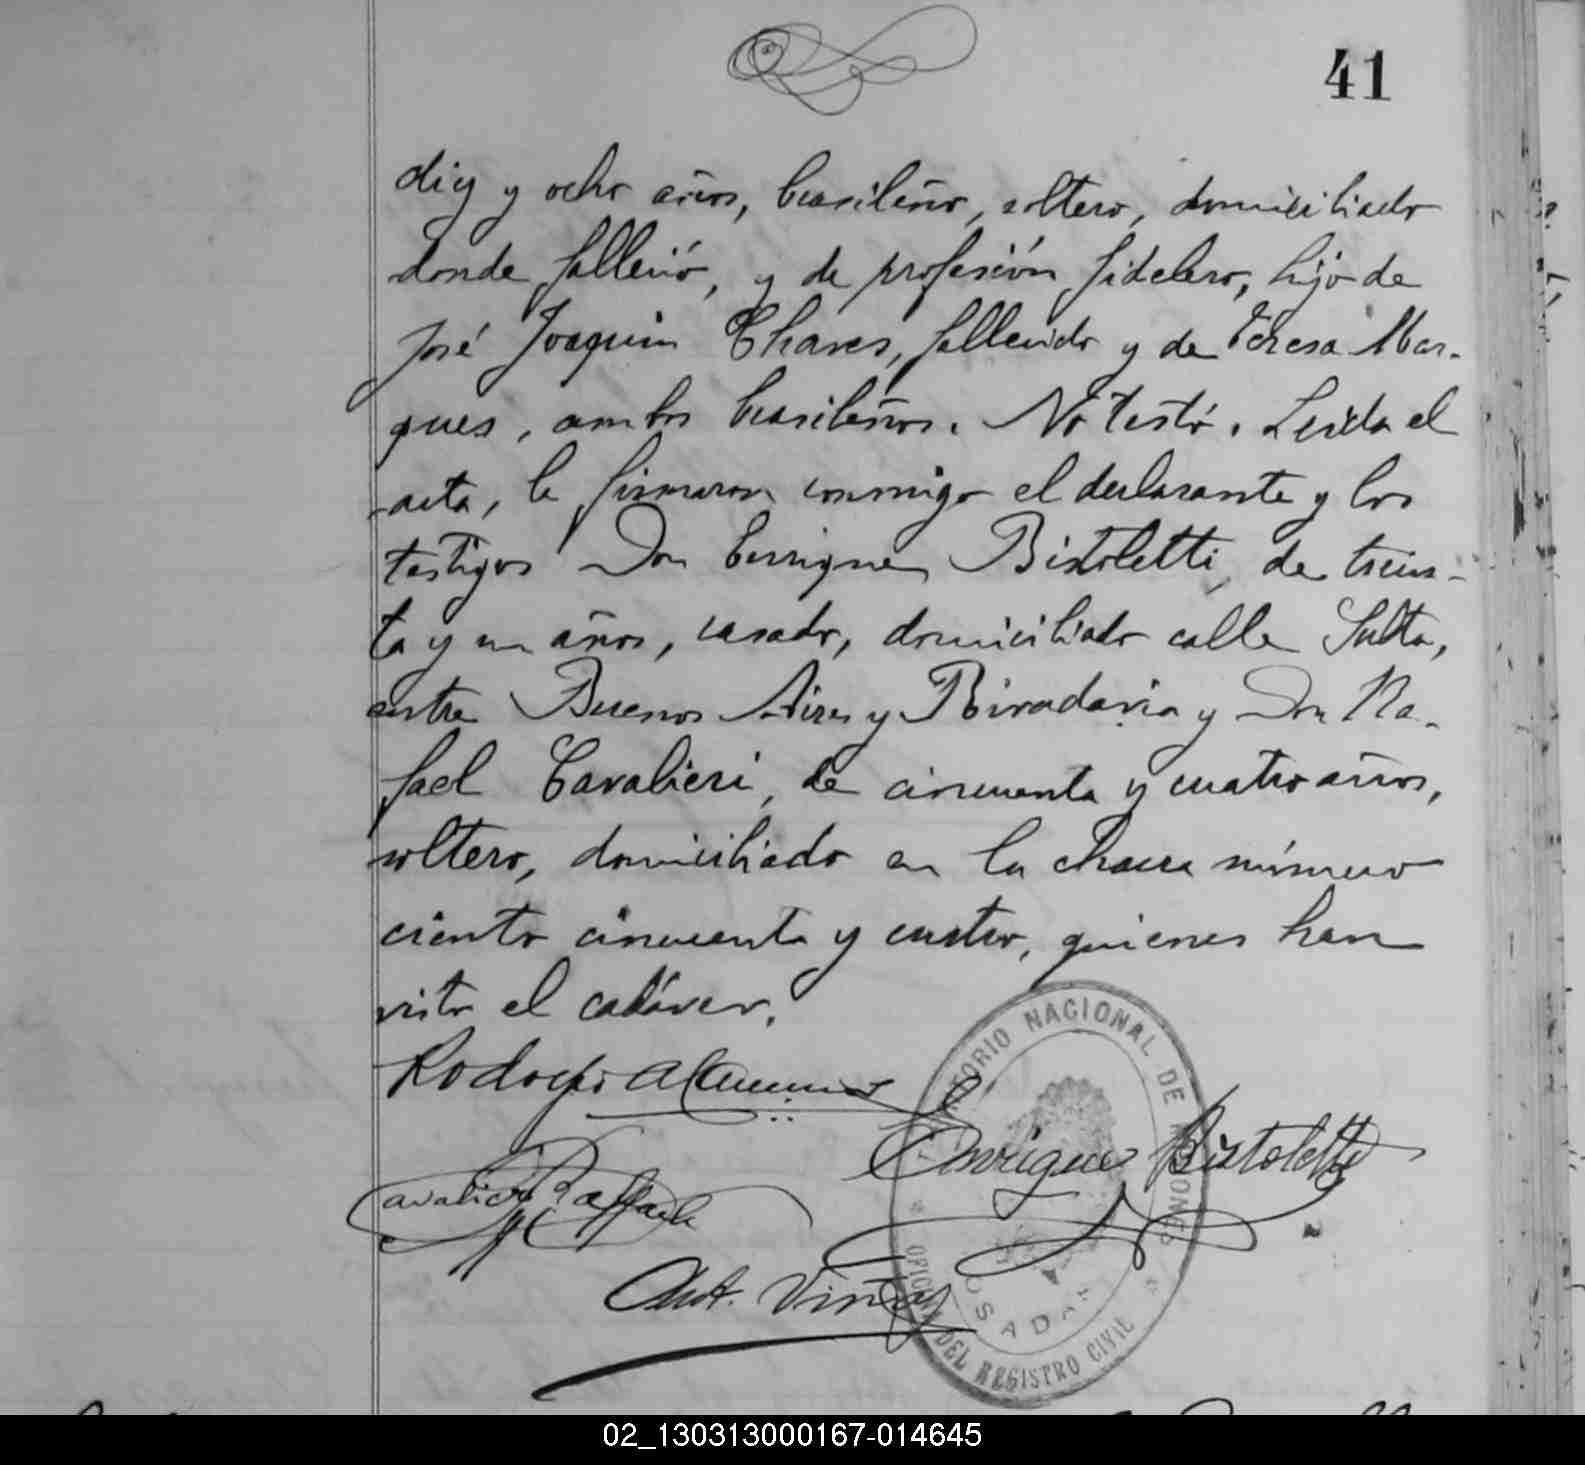 41
diez y ocho años, brasileño, soltero, domiciliado
donde falleció, y de profesión fidelero, hijo de
José Joaquin Chaves, fallecido y de Teresa Mar-
ques, ambos brasileños. No testó. Leida el
acta, la firmaron conmigo el declarante y los
testigos Don Enrique Bistoletti, de trein-
ta y un años, casado, domiciliado calle Salta,
entre Buenos Aires y Rivadavia y Don Ra-
fael Cavalieri, de cincuenta y cuatro años,
soltero, domiciliado en la chacra número
ciento cincuenta y cuatro, quienes han
visto el cadáver.
Rodolfo
Enrique Bistoletti
Cavalieri Raffaele
Ant. Viñas
TERRITORIO NACIONAL DE MISIONES
POSADAS
OFICINA DEL REGISTRO CIVIL
02_130313000167-014645